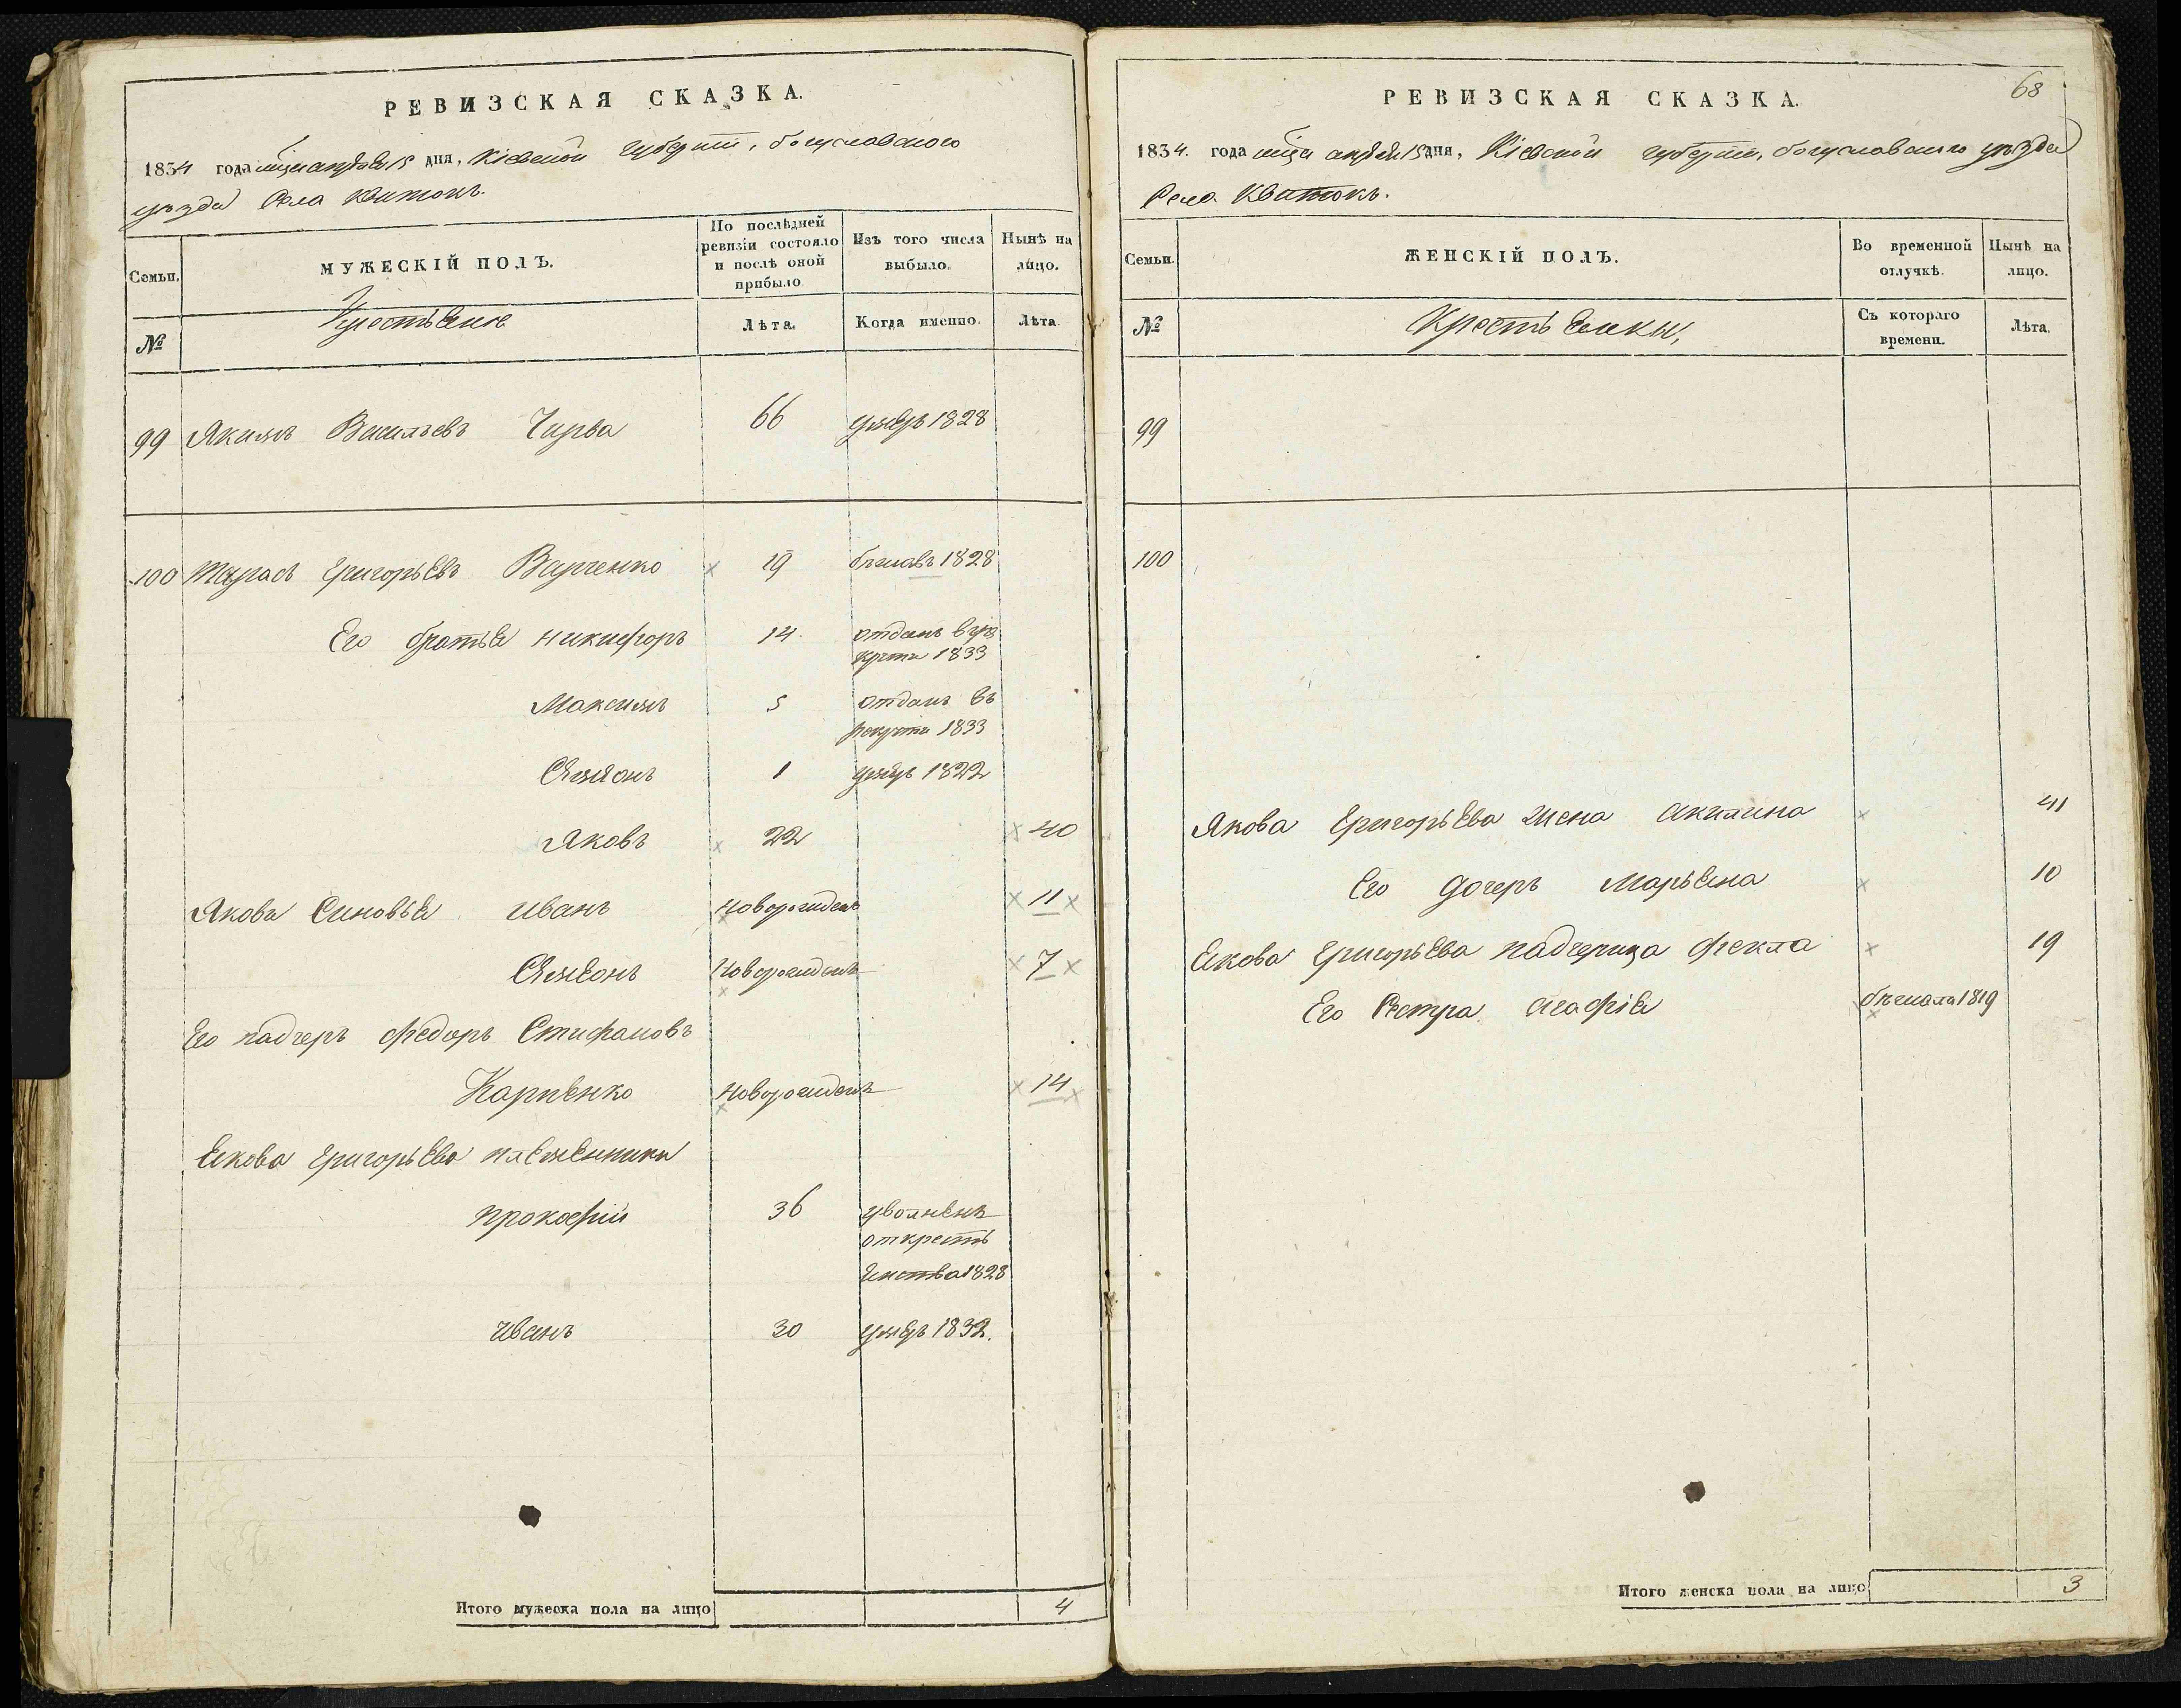 РЕВИЗСКАЯ СКАЗКА.
1834 года мца апреля 15 дня, Кіевской губерніи, богуславского
уѣзда Села Квитокъ.
Семьи.
МУЖЕСКІЙ ПОЛЪ.
По послѣдней ревизіи состояло и послѣ оной прибыло
Изъ того числа выбыло.
Нынѣ на лицо.
№
Крестьяне
Лѣта.
Когда именно.
Лѣта.
99 Якимъ Васильевъ Чирва 66 умеръ 1828
100 Тарасъ Григорьевъ Варченко 19 бѣжавъ 1828
Его братья никифоръ 14 отданъ в ре
круты 1833
Максимъ 5 отданъ въ
рекруты 1833
Симіонъ 1 умеръ 1822
Яковъ 22 40
Якова Синовья иванъ новорожденъ 11
Симеонъ Новорожденъ 7
Его падчеръ федоръ Стифановъ
Карпенко новорожденъ 14
Якова григорьева племенники
прокофій 36 уволненъ
открестъ
янства 1828
иванъ 30 умеръ 1832.
Итого мужеска пола на лицо 4
68
РЕВИЗСКАЯ СКАЗКА.
1834. года мца апреля 15 дня, Кіевской губерніи, богуславского уѣзда
Села Квитокъ.
Семьи.
ЖЕНСКІЙ ПОЛЪ.
Во временной отлучкѣ.
Нынѣ на лицо.
№
Крестьянки,
Съ котораго времени.
Лѣта.
99
100
Якова григорьева жена акилина 41
Его дочеръ марьяна 10
Якова григорьева падчерица фекла 19
Его Сестра агафія бѣжала 1819
Итого женска пола на лицо 3